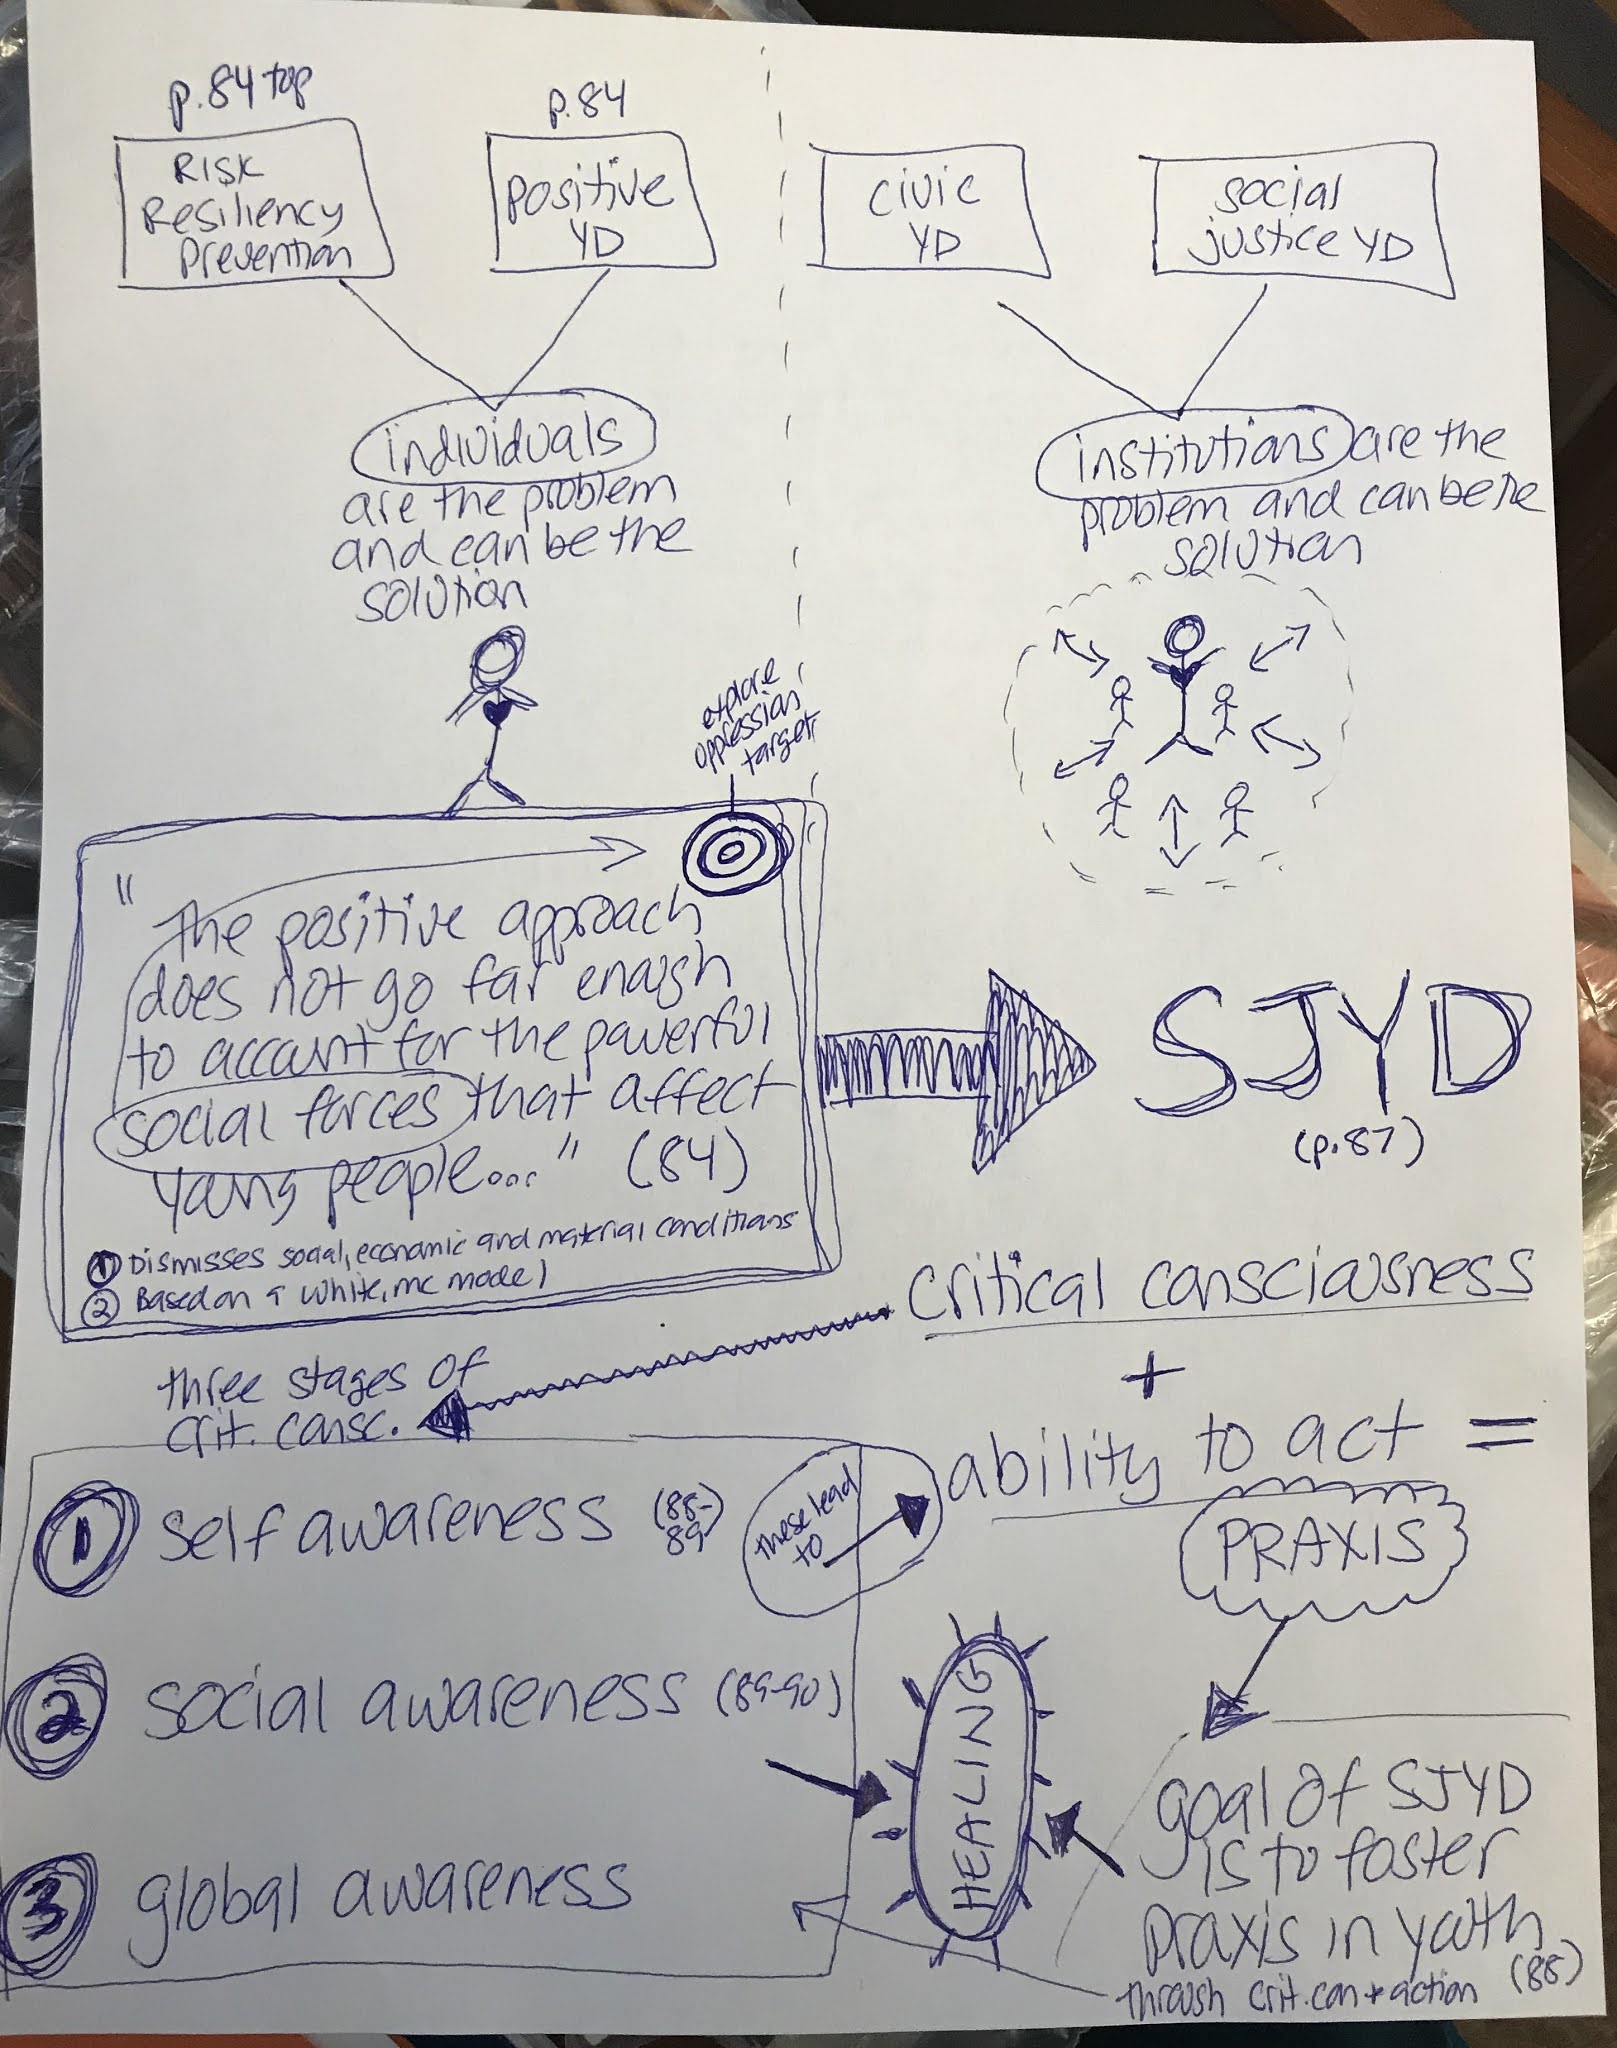 p.84 top
RISK
Resiliency
Prevention
p.84
positive
YD
civic
YD
social
justice YD
individuals
are the problem
and can be the
solution
institutions are the
problem and can be the
solution
explore
oppression
target
"The positive approach
does not go far enough
to account for the powerful
social forces that affect
young people..." (84)
① Dismisses social, economic and material conditions
② Based on a white, mc model
SJYD
(p.87)
critical consciousness
+
ability to act =
PRAXIS
three stages of
crit. consc.
1 self awareness (88-
89)
these lead
to
2 social awareness (89-90)
3 global awareness
HEALING
goal of SJYD
is to foster
praxis in youth
through crit. con + action (88)